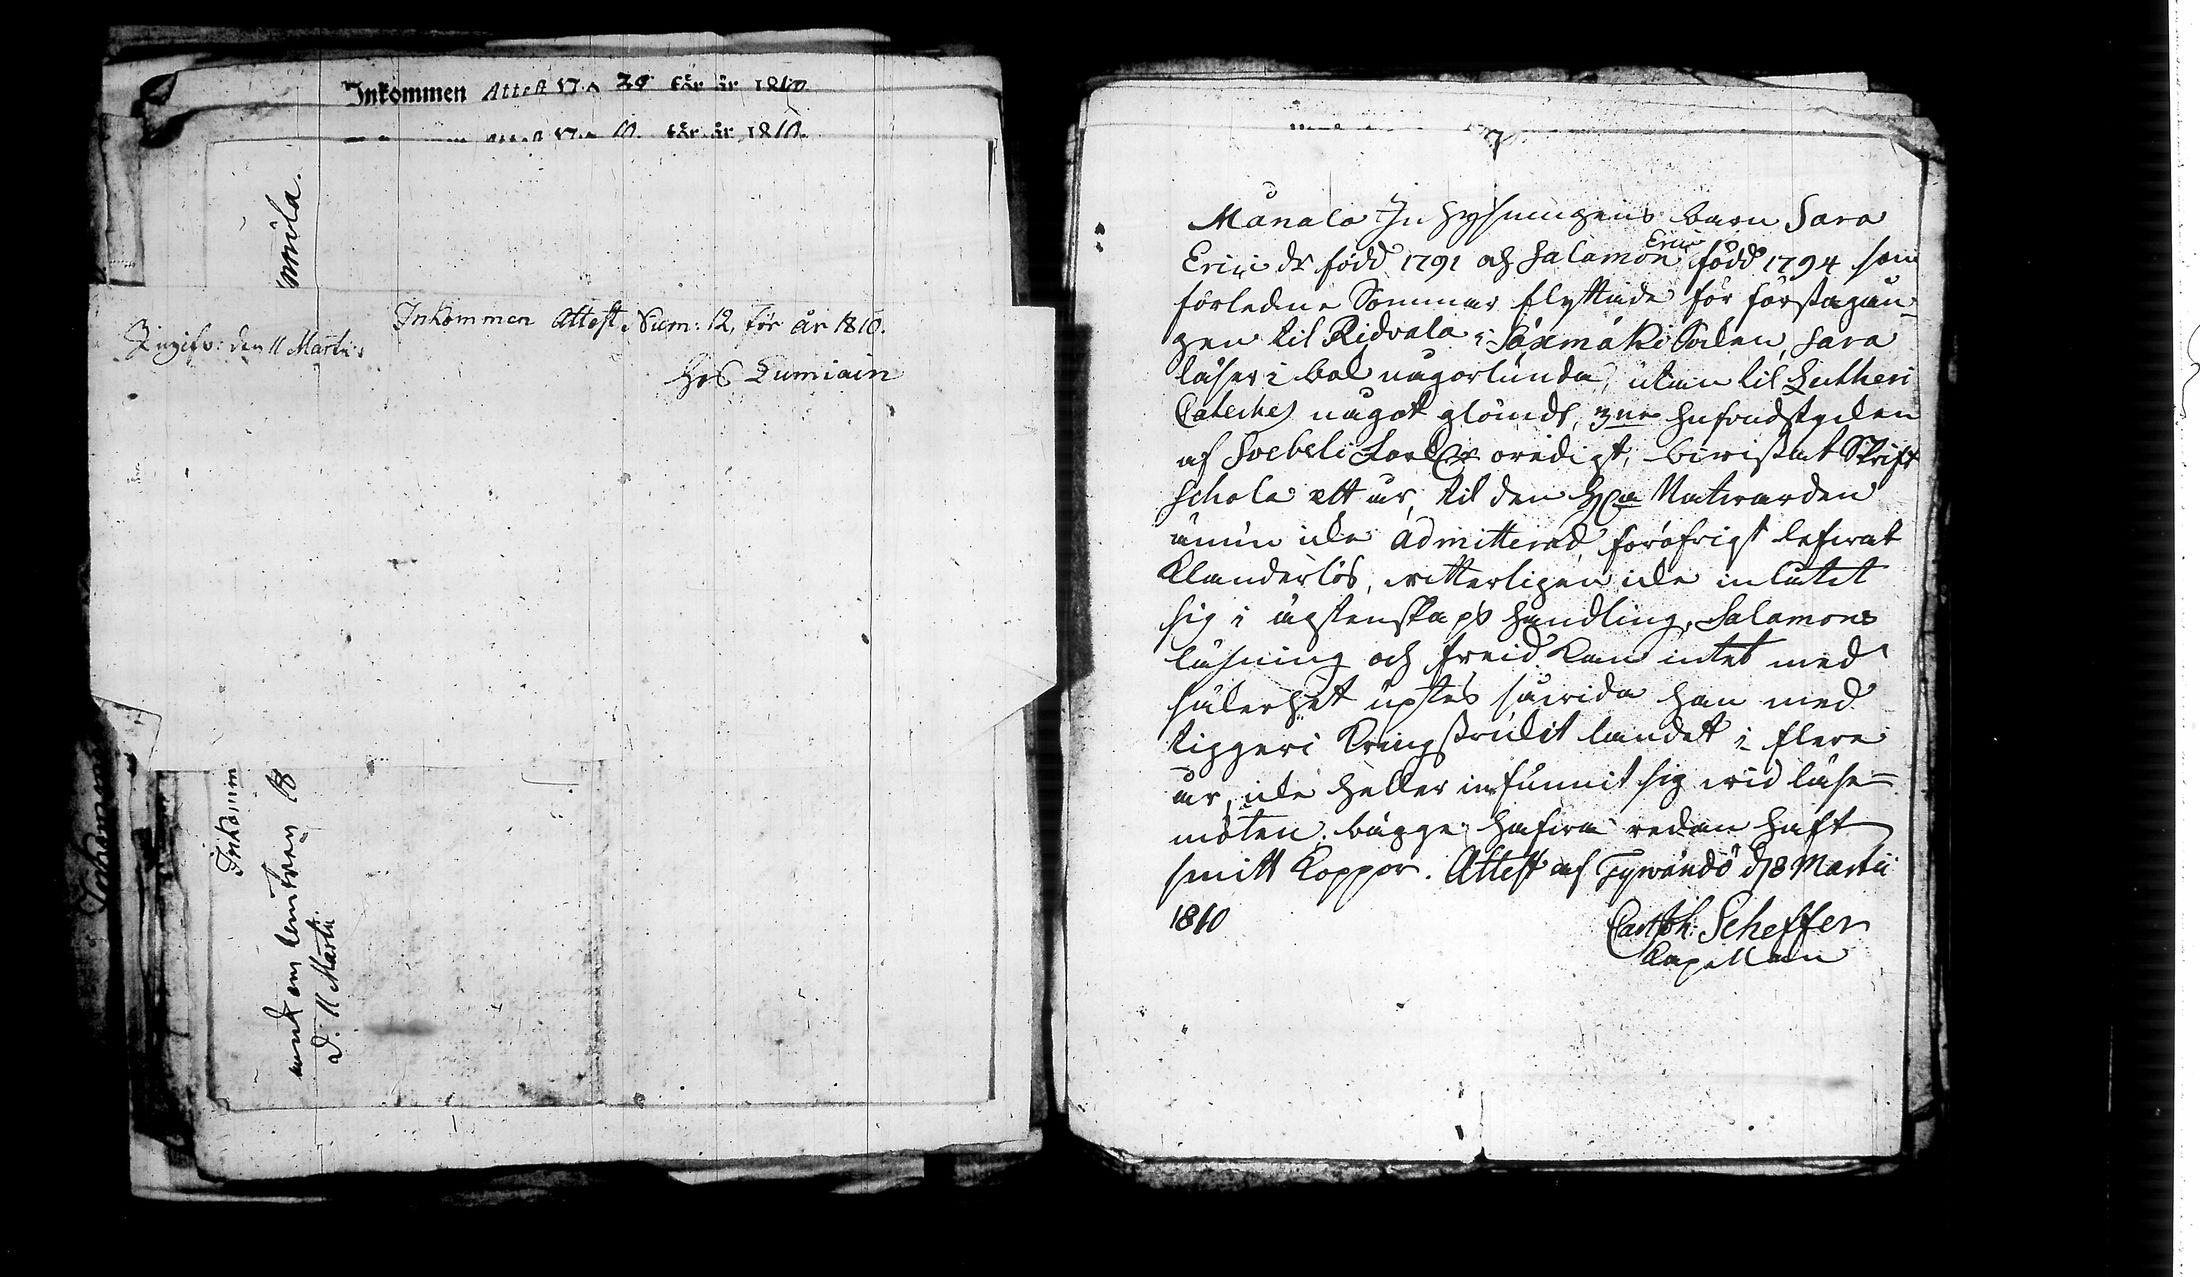 Inkommen Attest N:o 29 får år 1810
N:o 10. får år 1810.
Inkommen Attest Num: 12, för år 1810.
Ingifv: den 11 Martii
hos Lumiain
Inkomm
D. 11 Martii
Inkommen
Månala Inhysningens barn Sara
Erici dr född 1791 och Salamon Erici född 1794 som
förledne Sommar flyttade för förstagån-
gen til Ridvala i Säxmäki Soken, Sara
läser i bok någorlunda, utan til Lutheri
Cateches något glömdt, 3ne hufvudstycken
af Svebeli oredigt, bivistat Skrift
schola ett år, til den Nattvarden
ännu icke admitterad, föröfrigt lefvat
Klanderlös, vitterligen icke inlåtit
sig i ägtenskaps handling. Salamons
läsning och freid kan intet med
säkerhet uptes såvida han med
tiggeri Kringstrukit landet i flere
år, icke heller infunnit sig vid läse-
möten. bägge hafva redan haft
smitt Koppor. Attest af Tyrvändö d 8 Martii
1810
Scheffer
Kapellan